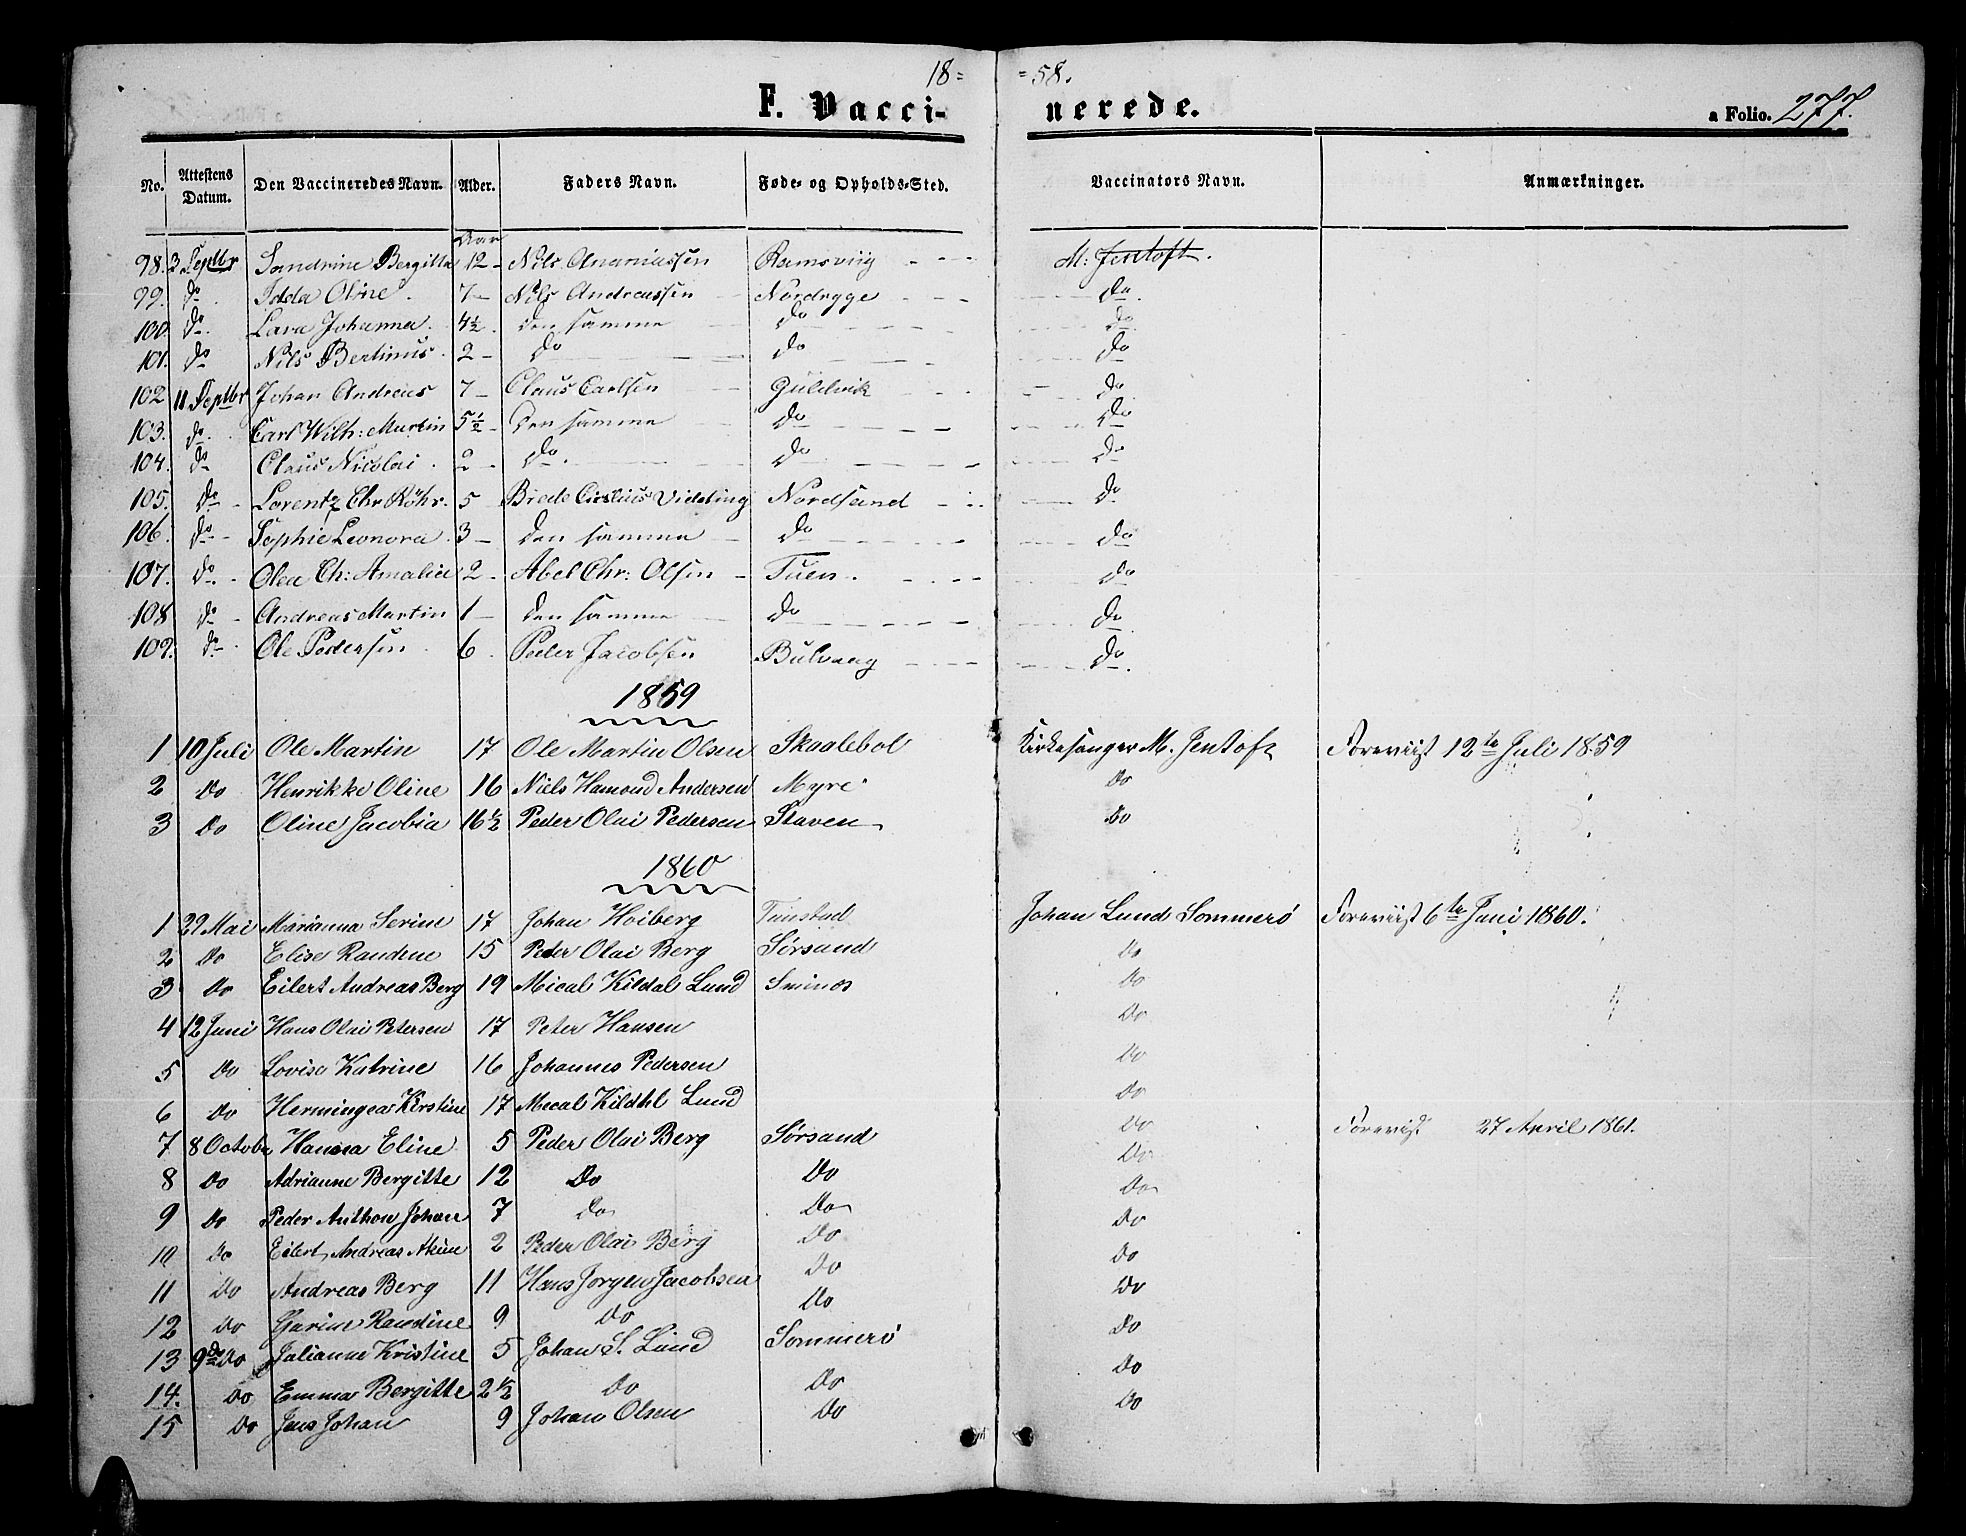 18= =58.
F. Vacci- nerede. a Folio. 277.
No. Attestens Datum. Den Vaccineredes Navn. Alder. Faders Navn. Føde- og Opholds-Sted. Vaccinators Navn. Anmærkninger.
Aar
98. 3 Septbr Sandrine Bergitta 12 - Nils Ananiassen Ramsviig M: Jentoft.
99. do Idda Oline. 7 - Nils Andreassen Nordryge do
100. do Lava Johanna. 4½ den samme do do
101. do Nils Bertinus. 2 - do do do
102 11 Septbr Johan Andreas 7 - Claus Carlsen Guldvik do
103. do Carl Wilh: Martin 5½ den samme do do
104. do Claus Nicolai. 2 - do. do do
105. do Lorentz Chr Röhr. 5 Brede Vidding Nordsand do
106. do Sophie Leonora. 3 - den samme do do
107. do Olea Ch: Amalia 2 - Abel Chr: Olsen Tuen. do
108 do Andreas Martin 1 - den samme do do
109. do Ole Pedersen 6 Peder Jacobsen Bulvaag do
1859
1 10 Juli Ole Martin 17 Ole Martin Olsen Skaalebol Kirkesanger M. Jentoft Foreviist 12te Juli 1859
2 Do Henrikke Oline 16 Niels Hamond Andersen Myre Do
3 Do Oline Jacobia 16½ Peder Olai Pedersen Staven Do
1860
1 29 Mai Marianna Serine 17 Johan Hoiberg Tinstad Johan Lund Sommerö Foreviist 6te Juni 1860.
2 Do Elise Randine 15 Peder Olai Berg Sørsand Do
3 Do Eilert Andreas Berg 19 Mical Kildal Lund Sminøs Do
4 12 Juni Hans Olai Petersen 17 Peter Hansen Do
5 Do Lovise Katrine 16 Johannes Pedersen Do
6 Do Hermingea Kirstine 17 Mecal Kildhl Lund Do
7 8 Octobr Hanna Eline 5 Peder Olai Berg Sørsand Do Forevist 27 April 1861.
8 Do Adrianne Bergitte 12 Do Do Do
9 Do Peder Anthon Johan 7 Do Do Do
10 Do Eilert Andreas 2 Peder Olai Berg Do Do
11 Do Andreas Berg 11 Hans Jorgen Jacobsen Do Do
12 Do Randine 9 Do Do Do
13 9de Do Julianne Kristine 5 Johan S. Lund Sommerö Do
14. Do Emma Bergitte 2½ Do Do Do
15 Do Jens Johan 9 Johan Olsen Do Do